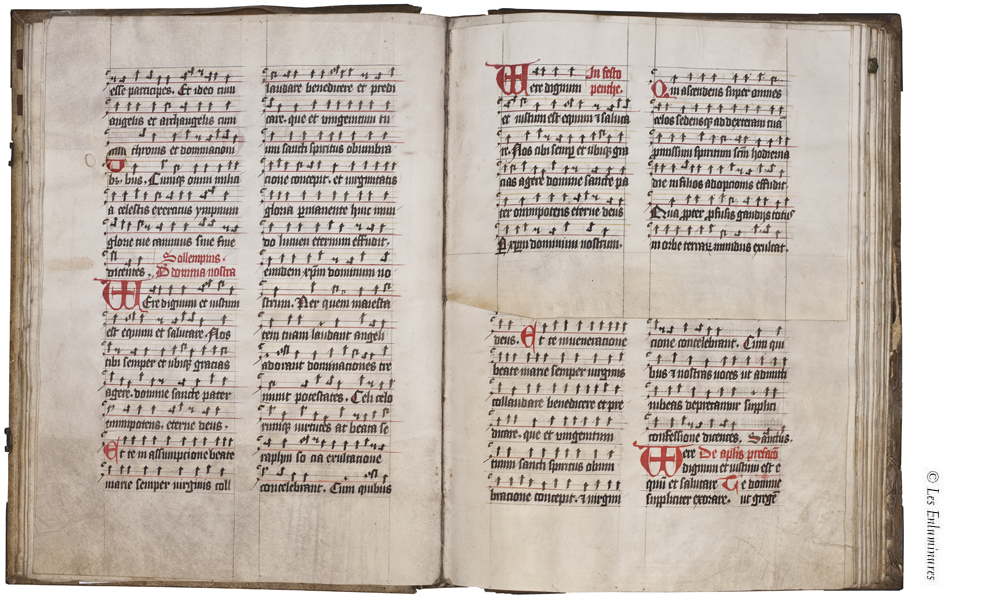 esse participes. Et ideo cum
angelis et archangelis cum
thronis et dominacioni
bus. Cumq; omni milici
a celestis exercitus ympnum
glorie tue canimus sine fine
dicentes. Sollempnis.
D domina nostra
VEre dignum et iustum
est equum et salutare. Nos
tibi semper et ubiq; gracias
agere. domine sancte pater
omnipotens. eterne deus.
Et te in assumpcione beate
marie semper virginis coll
laudare benedicere et predi
care. que et unigenitum tu
um sancti spiritus obumbra
cione concepit. et virginitatis
gloria permanente huic mun
do lumen eternum effudit.
eundem xpm dominum no
strum. Per quem maiesta
tem tuam laudant angeli
adorant dominaciones tre
munt potestates. Celi celo
rumq; virtutes at beata se
raphin so cia exultacione
concelebrant. Cum quibus
VEre dignum In festo
penthe.
et iustum est equum & saluta
re. Nos tibi semper et ubiq; gra
cias agere domine sancte pa
ter omnipotens eterne deus
Per xpm dominum nostrum.
Qui ascendens super omnes
celos sedensq; ad dexteram tua
promissum spiritum scm hodierna
die in filios adopcionis effudit.
Qua propter profusis gaudijs totus
in orbe terrarum mundus exultat.
deus. Et te in veneracione
beate marie semper virginis
collaudare benedicere et pre
dicare. que et unigenitum
tuum sancti spiritus obum
bracione concepit. & virgini
cione concelebrant. Cum qui
bus & nostras voces ut admitti
iubeas deprecamur supplici
confessione dicentes. Sanctus.
VEre De aplis prefacio
dignum et iustum est e
quum et salutare Te domine
suppliciter exorare. ut gregem
© Les Enluminures